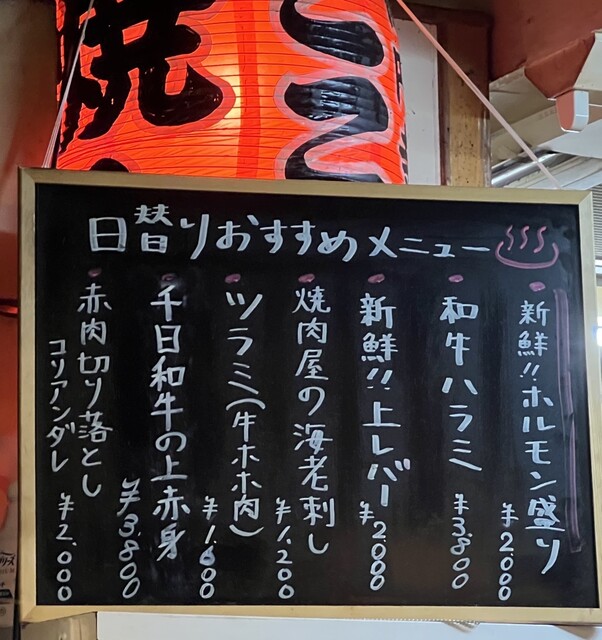 焼
日替りおすすめメニュー
新鮮!!ホルモン盛り
¥2000
和牛ハラミ
¥3,800
新鮮!!上レバー
¥2,000
焼肉屋の海老刺し
¥1,200
ツラミ(牛ホホ肉)
¥1,600
千日和牛の上赤身
¥3,800
赤肉切り落とし
コリアンダレ
¥2,000